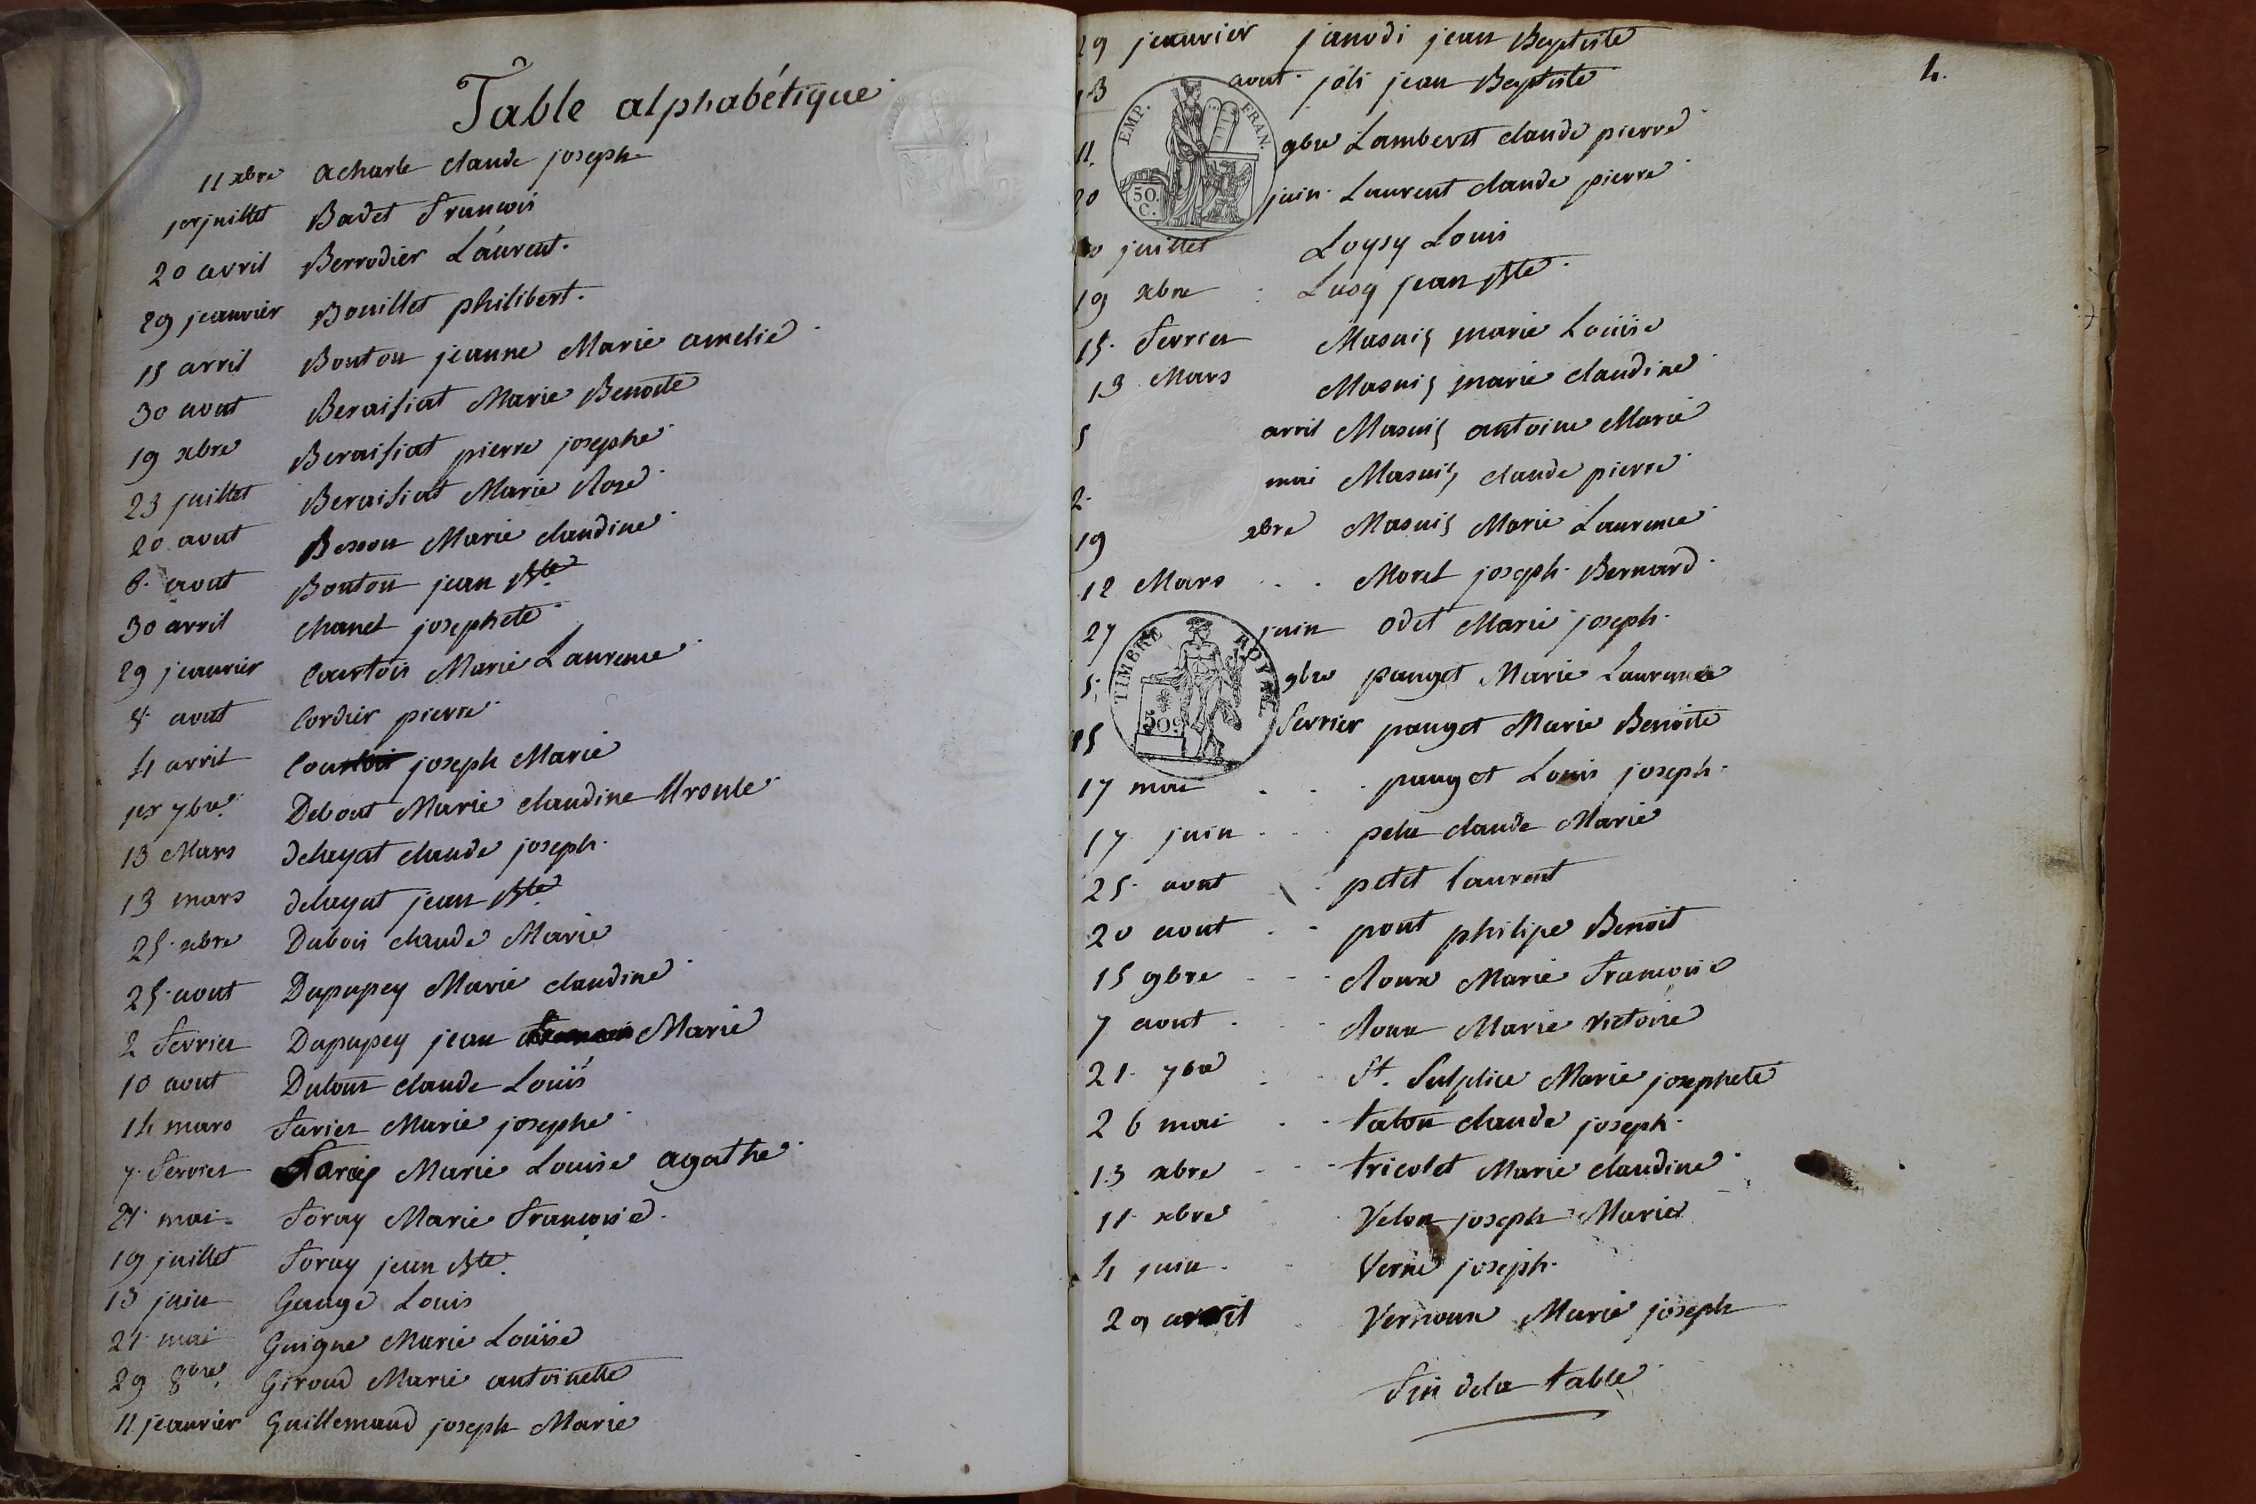 Table alphabétique
11 xbre acharle claude joseph
1er juillet Badet francois
20 avril Berrodier Laurent.
29 jeanvier Bouillet philibert.
15 avril Bouton jeanne Marie amelie
30 aout Beraisiat Marie Benoite
19 xbre Beraisiat pierre josephe
23 juillet Beraisiat Marie Rose
20 aout Besson Marie claudine
8. aout Bouton jean Bte
30 avril chanel josephete
29 jeanvier Courtois Marie Laurence
8. aout Cordier pierre
4 avril joseph Marie
1er 7bre Debout Marie claudine Ursule
13 Mars delayat claude joseph.
13 mars delayat jean Bte
25. xbre Dubois claude Marie
25. aout Dupupey Marie claudine
2 fevrier Dupupey jean Marie
10 aout Dutour claude Louis
14 mars favier Marie josephe
7. fevrier Marie Louise agathe
21. mai foray Marie francoise.
19 juillet foray jean Bte.
13 juin Gauge Louis
21 mai Guigne Marie Louise
29 8bre. Giroud Marie antoinette
11 jeanvier Guillemaud joseph Marie
29 jeanvier janodi jean Baptiste
13 aout joli jean Baptiste
4.
EMP. FRAN.
50. C.
11. 9bre Lamberet claude pierre
20 juin Laurent claude pierre
juillet Loysy Louis
19 xbre Lucy jean Bte.
15. fevrier Masuis marie Louise
13 Mars Masuis marie claudine
5 avril Masuis antoine Marie
2. mai Masuis claude pierre
19 xbre Masuis Marie Laurence
12 Mars Morel joseph Bernard
27 juin odet Marie joseph.
TIMBRE ROYAL
50c
5. 9bre pauget Marie Laurence
15 fevrier pauget Marie Benoite
17 mai pauget Louis joseph.
17 juin pelu claude Marie
25. aout petit laurent
20 aout pont philipe Benoit
15 9bre Roux Marie francoise
7 aout Roux Marie victoire
21. 7bre St. Sulplice Marie josephete
26 mai talon claude joseph
13 xbre tricolet Marie claudine
11 xbre Velon joseph Marie
4 juin Verne joseph.
29 avril Vernoux Marie joseph
fin dela table